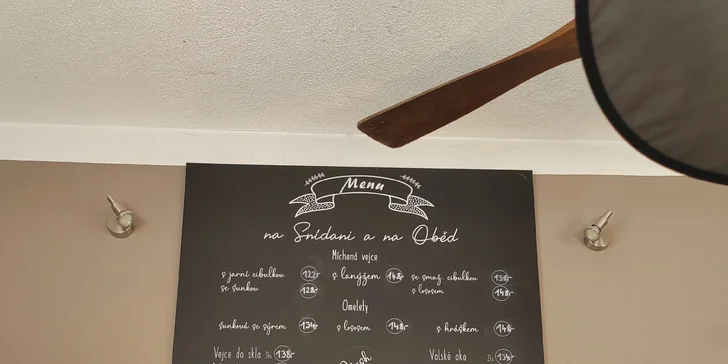 Menu
na Snídani a na Oběd
Míchaná vejce
s jarní cibulkou 122,- s lanýžem 148,- se smaž. cibulkou 138,-
se šunkou 128,- s lososem 148,-
Omelety
šunková se sýrem 134,- s lososem 148,- s hráškem 148,-
Vejce do skla 138,- Volské oko